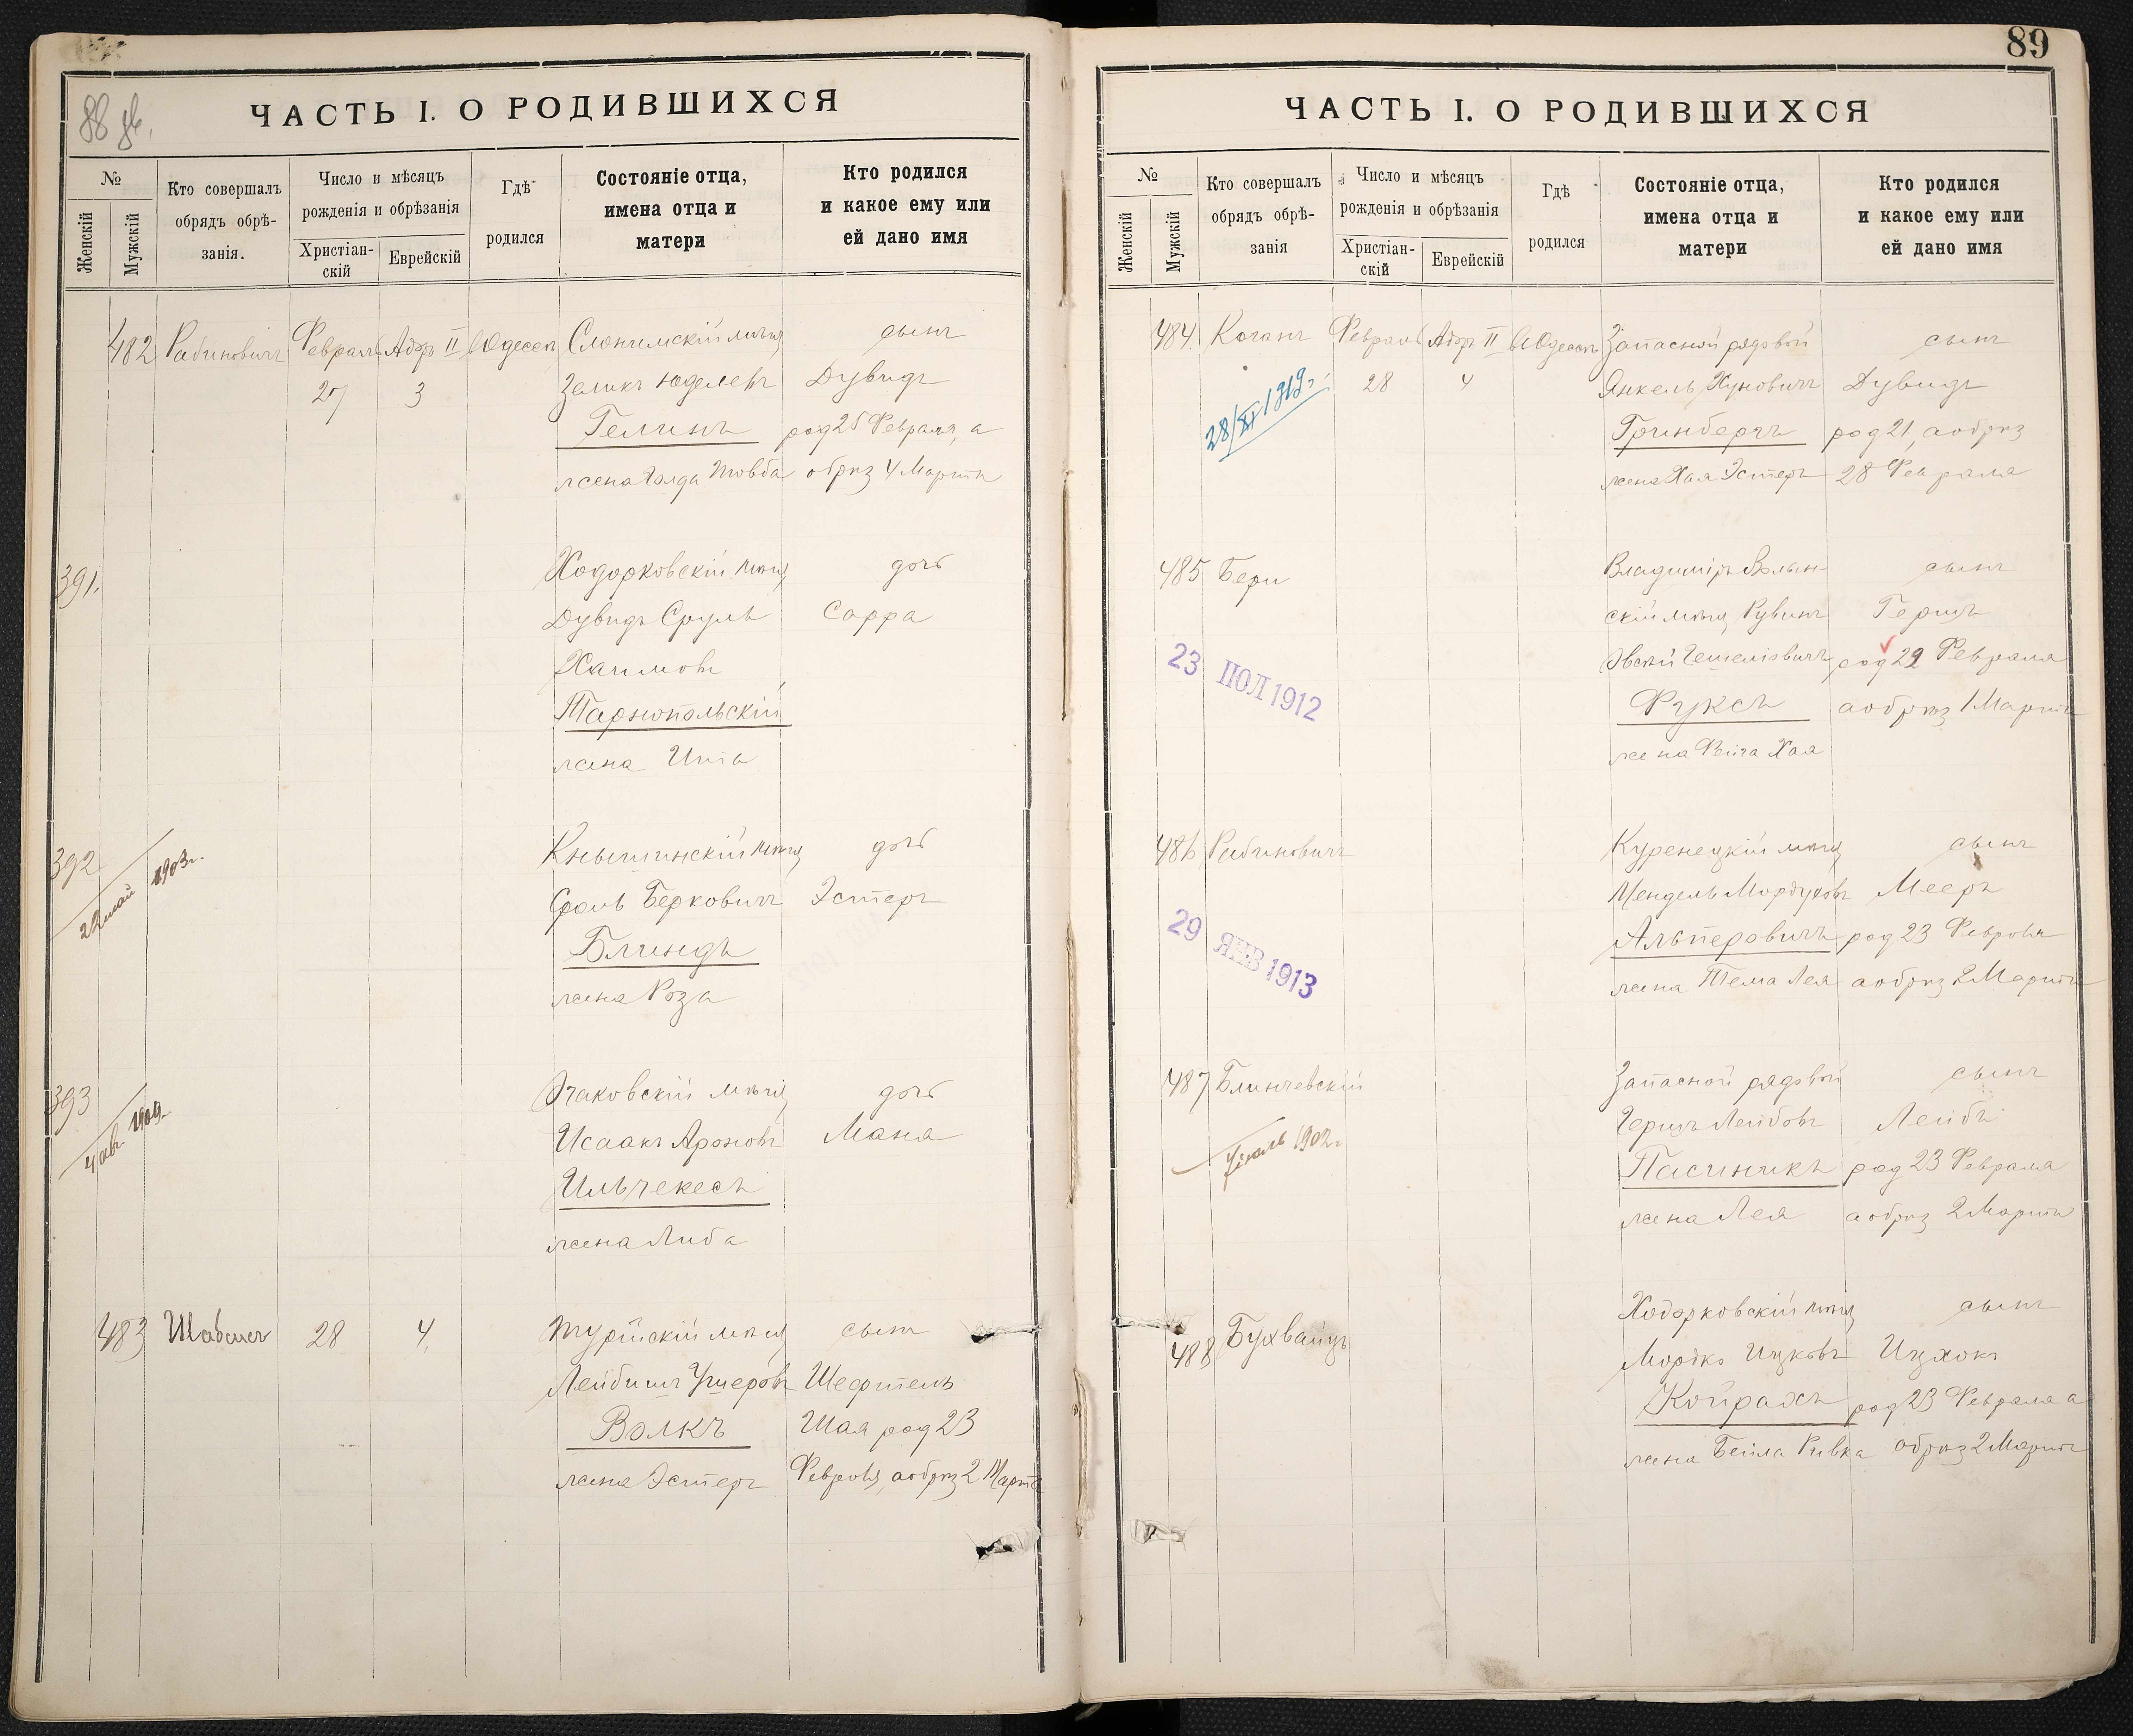 88 дв.
ЧАСТЬ I. О РОДИВШИХСЯ
№
Женскій
Мужскій
Кто совершалъ
обрядъ обрѣ-
занія.
Число и мѣсяцъ
рожденія и обрѣзанія
Христіан-
скій
Еврейскій
Гдѣ
родился
Состояніе отца,
имена отца и
матери
Кто родился
и какое ему или
ей дано имя
482 Рабиновичъ Февраль Адаръ II в Одессѣ Слонимскій мѣщ сынъ
27 3 Зеликъ Юделевъ Дувидъ
Гелинъ род 25 Февраля, а
жена Голда Товба обрѣз 4 Марта
391. Ходорковскій мѣщ дочь
Дувидъ Сруль Сарра
Хаимовъ
Тарнопольскій
жена Ита
392 Кнышинскій мѣщ дочь
22 май 1903 г.
Сроль Берковичъ Эстеръ
Блиндъ
жена Роза
393 Очаковскій мѣщ дочь
4 ав. 1909 г.
Исаакъ Ароновъ Маня
Ильчекесъ
жена Либа
483 Шабсисъ 28 4. Турійскій мѣщ сынъ
Лейбишъ Ушеровъ Шефтель
Волкъ Шая род 23
жена Эстеръ Февраля, а обрѣз 2 Марта
89
ЧАСТЬ I. О РОДИВШИХСЯ
№
Женскій
Мужскій
Кто совершалъ
обрядъ обрѣ-
занія
Число и мѣсяцъ
рожденія и обрѣзанія
Христіан-
скій
Еврейскій
Гдѣ
родился
Состояніе отца,
имена отца и
матери
Кто родился
и какое ему или
ей дано имя
484. Коганъ Февраль Адаръ II в Одессѣ Запасный рядовой сынъ
28 4 Янкель Хуновичъ Дувидъ
28/XI 1919 г.
Гринбергъ род 21, а обрѣз
жена Хая Эстеръ 28 Февраля
485 Бери Владиміръ Волын- сынъ
скій мѣщ Рувинъ Герцъ
23 ІЮЛ 1912
род 22 Февраля
Фуксъ а обрѣз 1 Марта
жена Фейга Хая
486 Рабиновичъ Куренецкій мѣщ сынъ
Мендель Мордуховъ Мееръ
29 ЯНВ 1913
Альперовичъ род 23 Февраля
жена Тема Лея а обрѣз 2 Марта
487 Блинчевскій Запасной рядовой сынъ
Герцъ Лейбовъ Лейбъ
1902 г.
Пасиникъ род 23 Февраля
жена Лея а обрѣз 2 Марта
488 Бухвайцъ Ходорковскій мѣщ сынъ
Мордко Ицковъ Ицхокъ
Койрахъ род 23 Февраля а
жена Бейла Ривка обрѣз 2 Марта